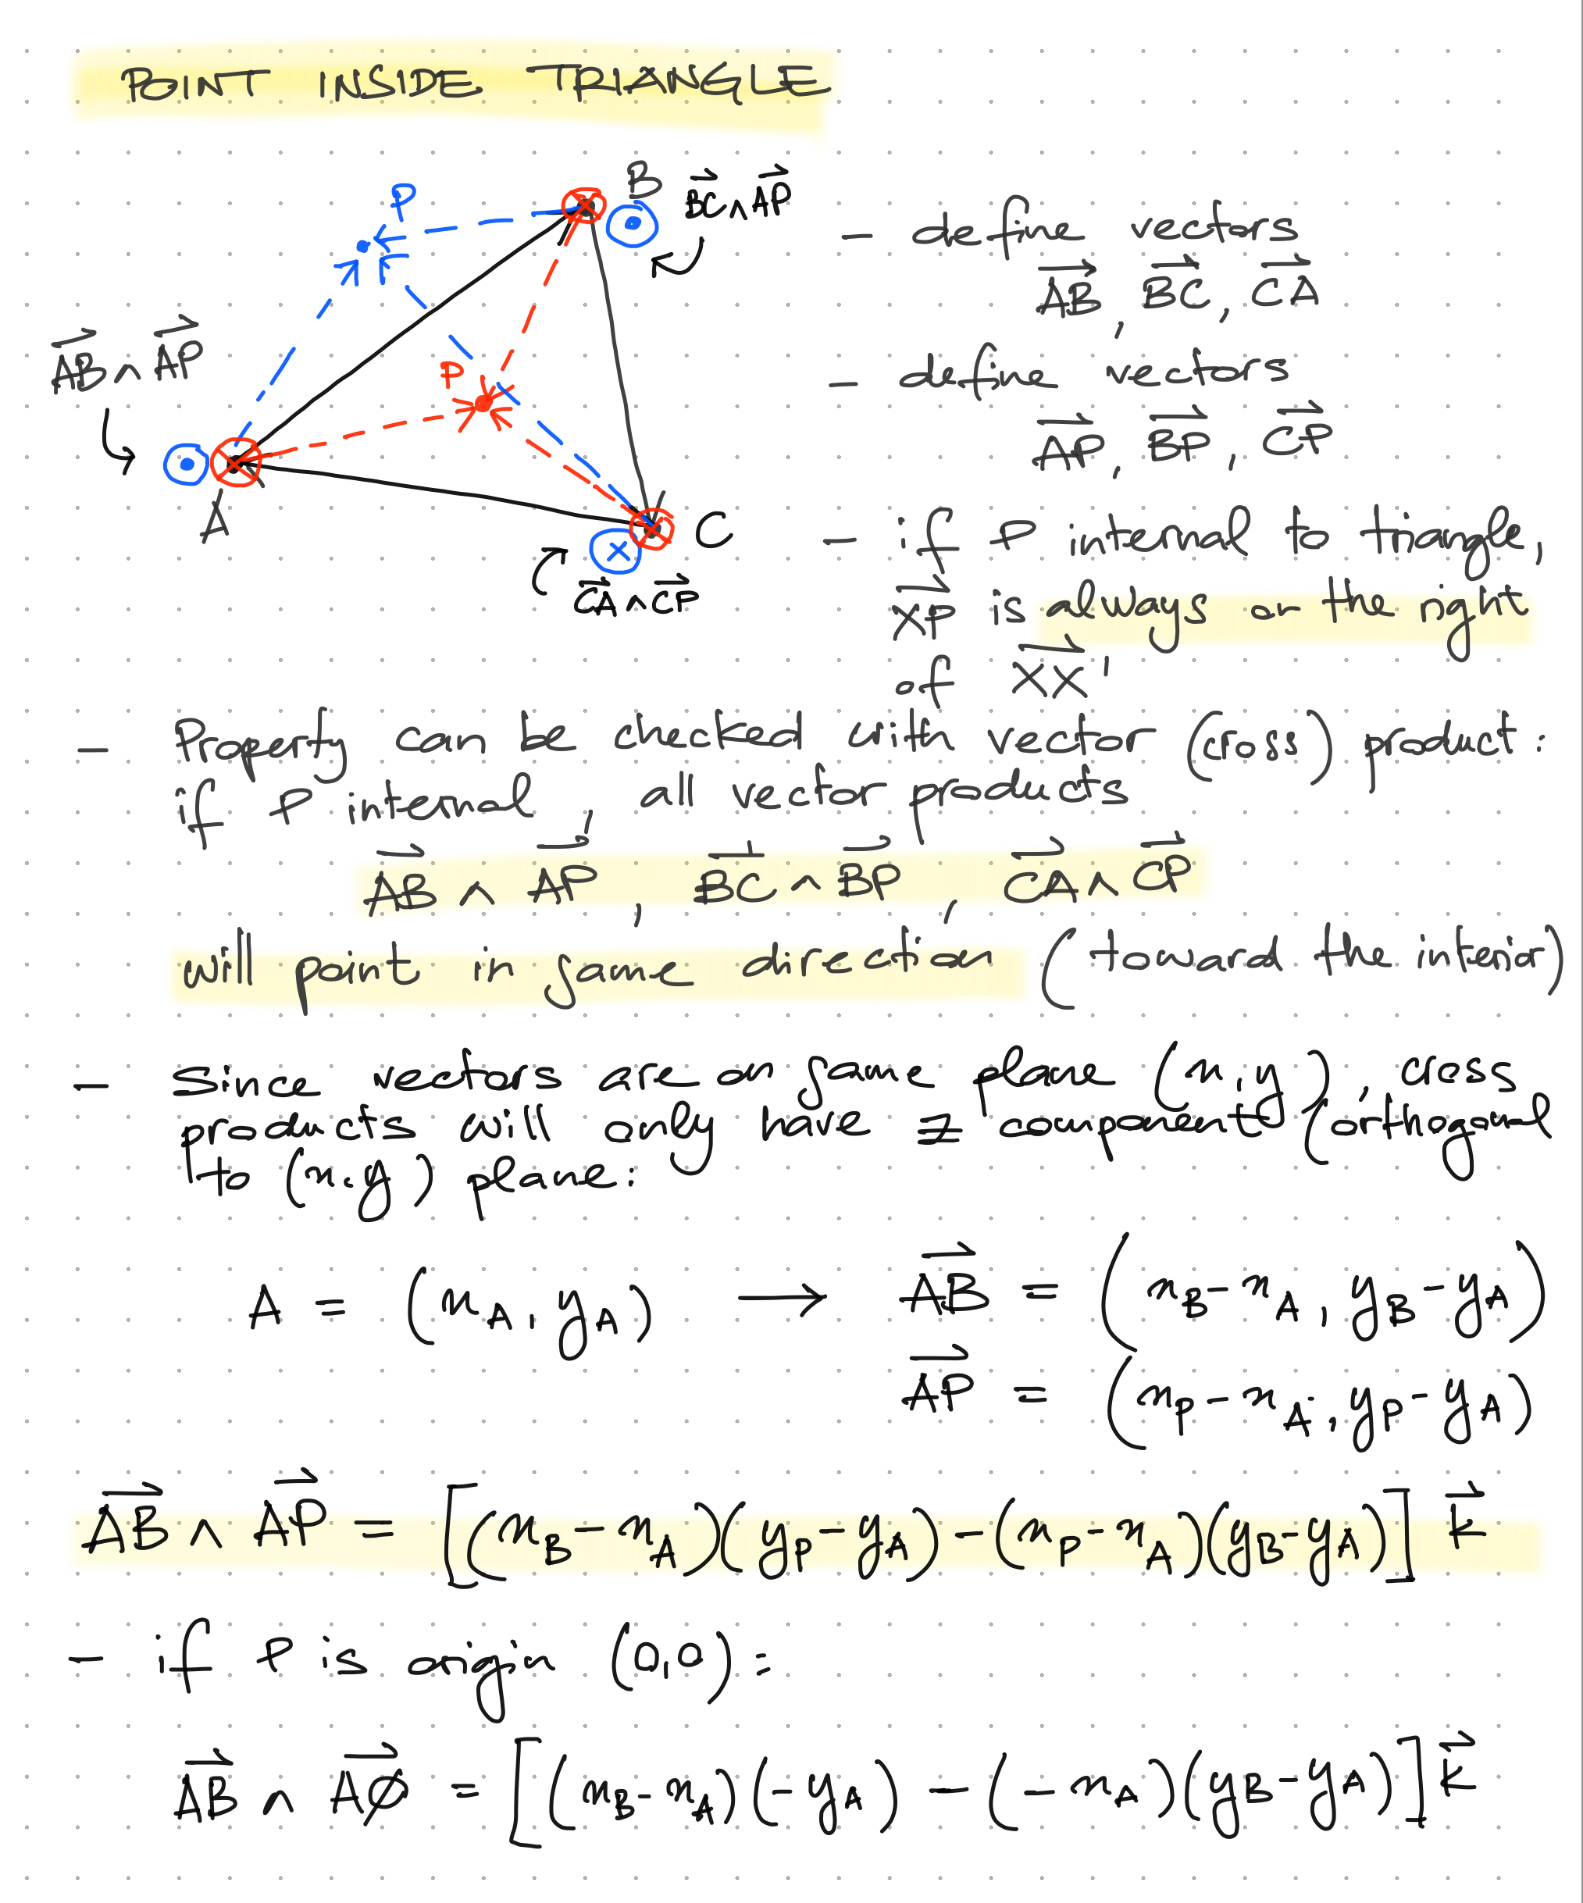 POINT INSIDE TRIANGLE
P
B
BC ∧ AP
AB ∧ AP
P
A
C
CA ∧ CP
- define vectors
AB, BC, CA
- define vectors
AP, BP, CP
- if P internal to triangle,
XP is always on the right
of XX'
- Property can be checked with vector (cross) product:
if P internal, all vector products
AB ∧ AP, BC ∧ BP, CA ∧ CP
will point in same direction (toward the interior)
- Since vectors are on same plane (x,y), cross
products will only have z component (orthogonal
to (x,y) plane:
A = (x_A, y_A) → AB = (x_B - x_A, y_B - y_A)
AP = (x_P - x_A, y_P - y_A)
AB ∧ AP = [(x_B - x_A)(y_P - y_A) - (x_P - x_A)(y_B - y_A)] k
- if P is origin (0,0):
AB ∧ AØ = [(x_B - x_A)(-y_A) - (-x_A)(y_B - y_A)] k